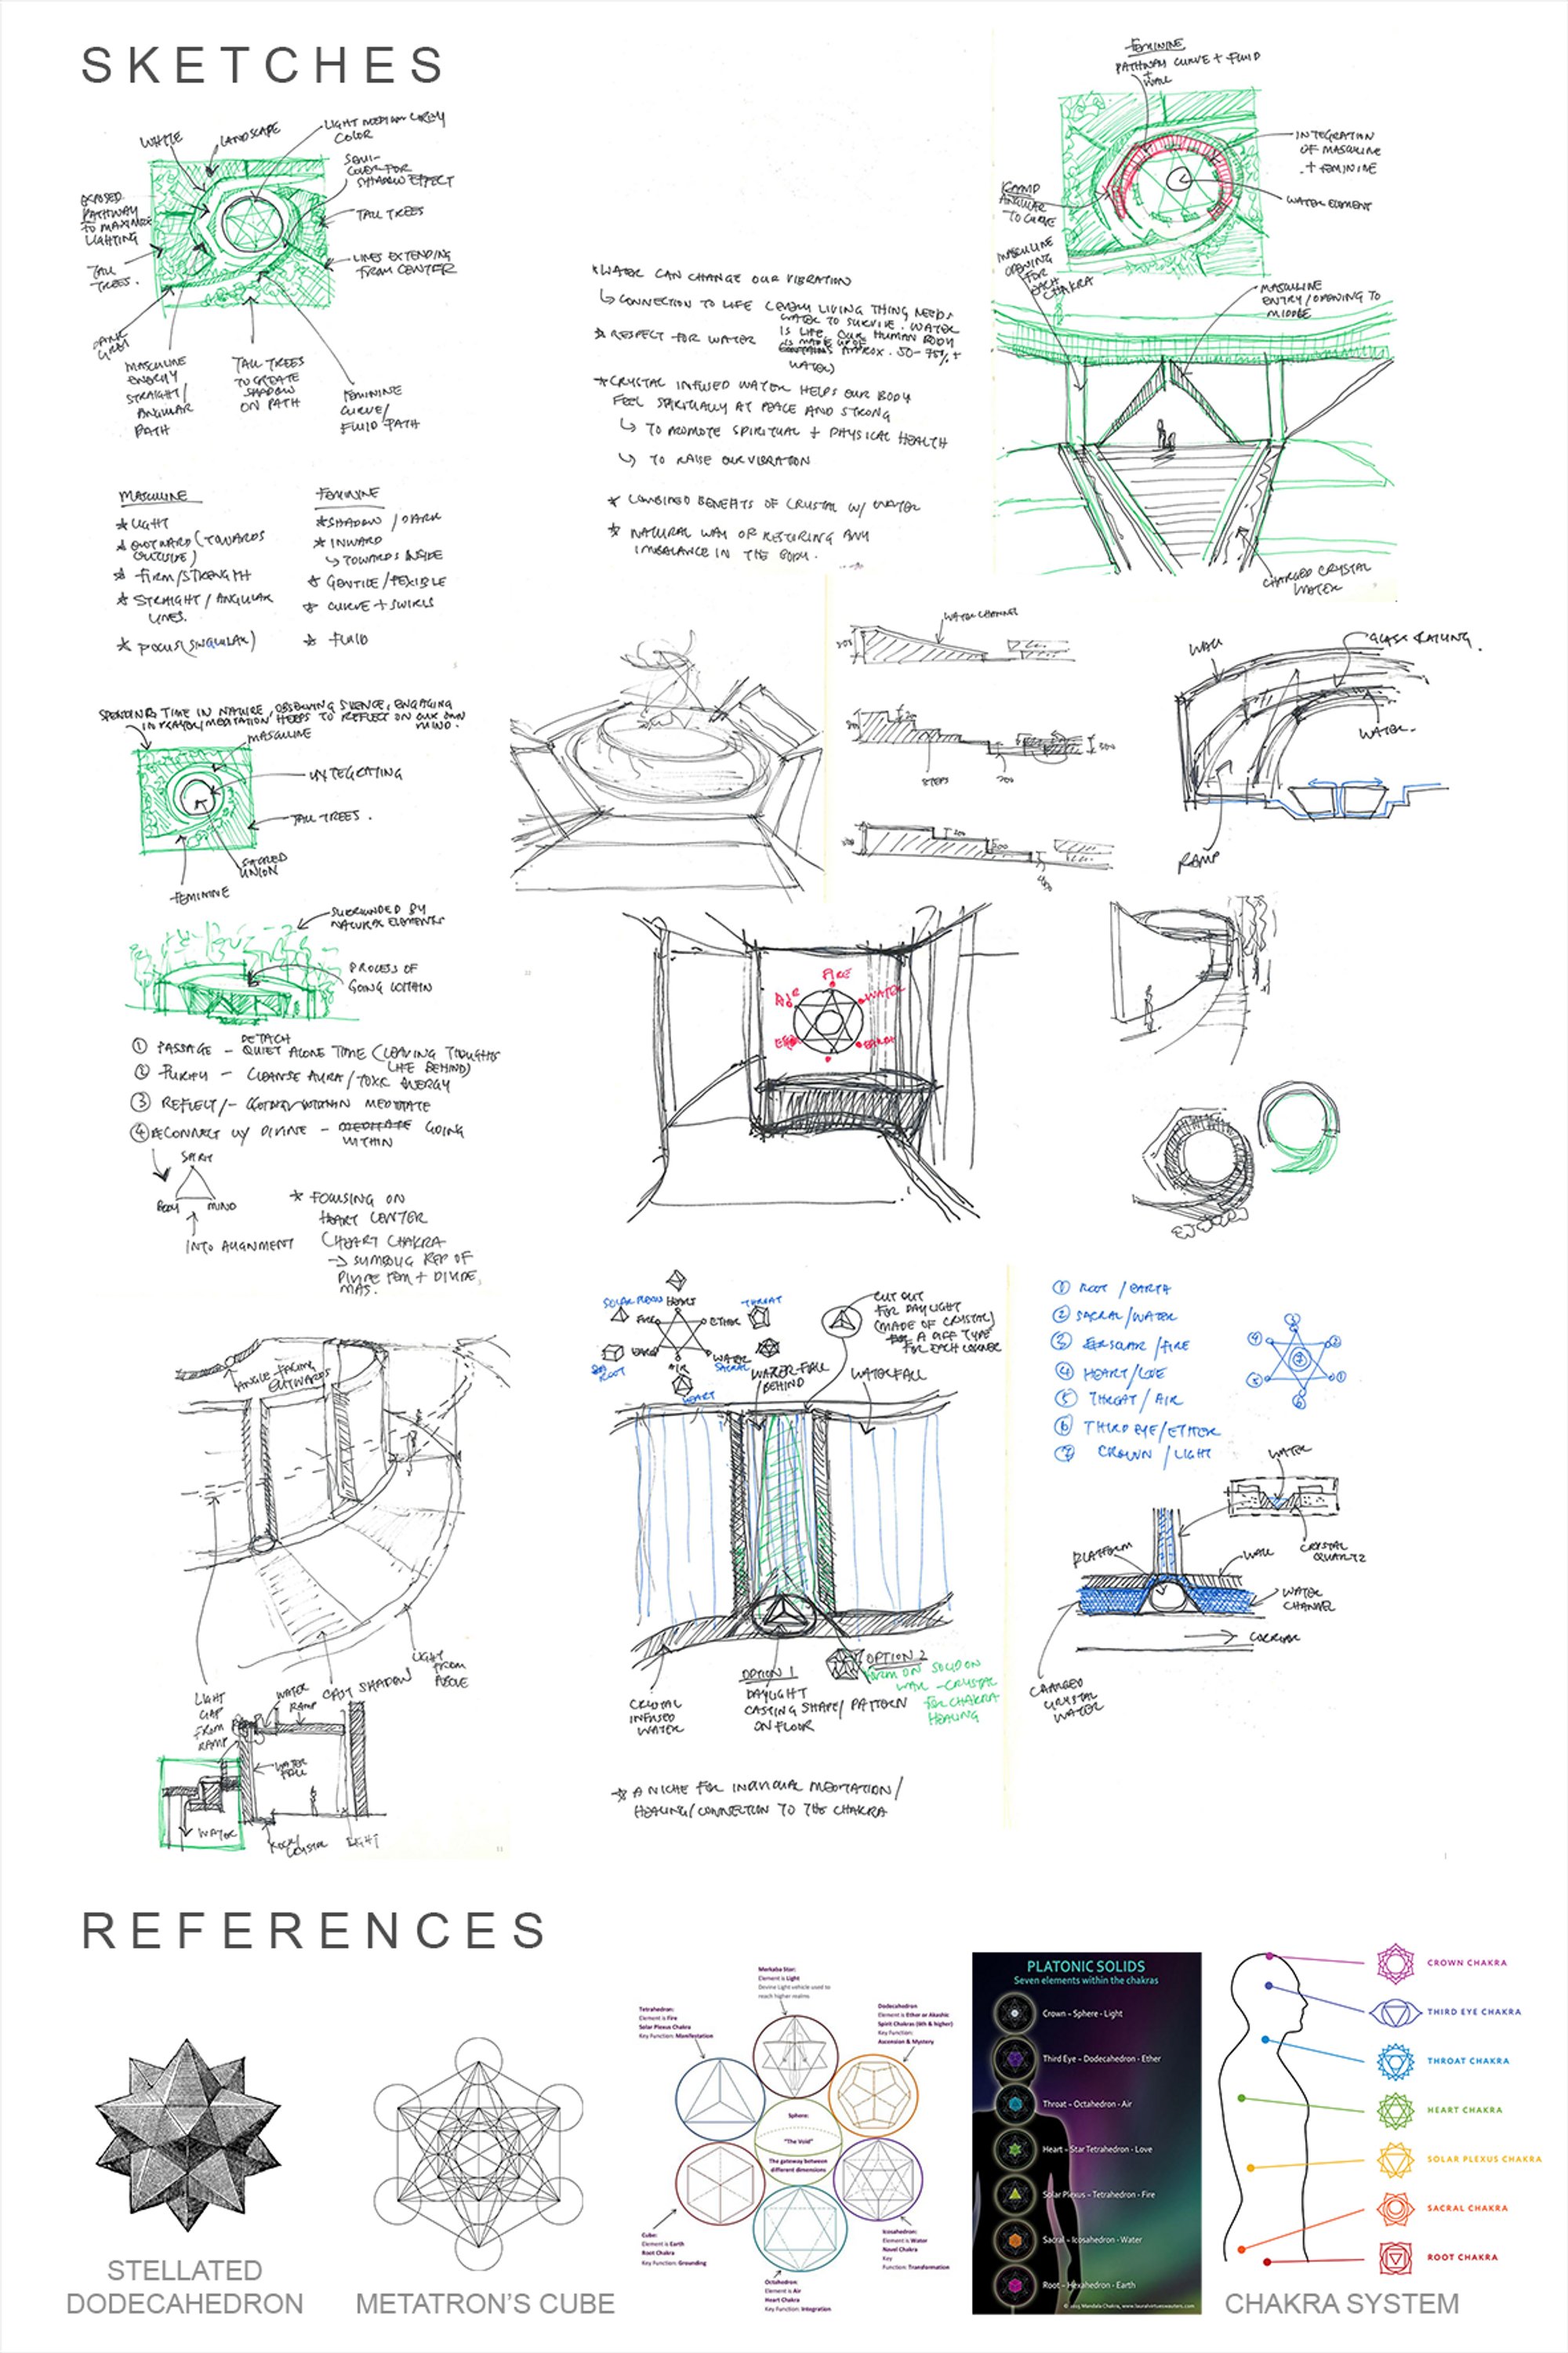 SKETCHES
WHITE
LANDSCAPE
LIGHT MEDIUM GREY
COLOR
SEMI-
COVER FOR
SHADOW EFFECT
EXPOSED
PATHWAY
TO MAXIMIZE
LIGHTING
TALL TREES
LINES EXTENDING
FROM CENTER
TALL
TREES.
DARK
GREY
MASCULINE
ENERGY
STRAIGHT/
ANGULAR
PATH
TALL TREES
TO CREATE
SHADOW
ON PATH
FEMININE
CURVE/
FLUID PATH
MASCULINE
* LIGHT
* OUTWARD (TOWARDS
OUTSIDE)
* FIRM/STRENGTH
* STRAIGHT/ANGULAR
LINES.
* FOCUS (SINGULAR)
FEMININE
* SHADOW / DARK
* INWARD
↳ TOWARDS INSIDE
* GENTLE/FLEXIBLE
* CURVE + SWIRLS
* FLUID
SPENDING TIME IN NATURE, OBSERVING SILENCE, ENGAGING
IN PRAYER/MEDITATION HELPS TO REFLECT ON OUR OWN
MIND.
MASCULINE
INTEGRATING
TALL TREES.
SACRED
UNION
FEMININE
SURROUNDED BY
NATURAL ELEMENTS
PROCESS OF
GOING WITHIN
① PASSAGE - DETACH
QUIET ALONE TIME (LEAVING THOUGHTS
LIFE BEHIND)
② PURIFY - CLEANSE AURA/TOXIC ENERGY
③ REFLECT/- GOING WITHIN MEDITATE
④ RECONNECT W/ DIVINE - MEDITATE GOING
WITHIN
SPIRIT
BODY MIND
INTO ALIGNMENT
* FOCUSING ON
HEART CENTER
(HEART CHAKRA
→ SYMBOLIC REP OF
DIVINE FEM + DIVINE
MAS.
* WATER CAN CHANGE OUR VIBRATION
↳ CONNECTION TO LIFE (EVERY LIVING THING NEEDS
WATER TO SURVIVE. WATER
* RESPECT FOR WATER IS LIFE. OUR HUMAN BODY
IS MADE UP OF
CONTAINS APPROX. 50-75% +
WATER)
* CRYSTAL INFUSED WATER HELPS OUR BODY
FEEL SPIRITUALLY AT PEACE AND STRONG
↳ TO PROMOTE SPIRITUAL + PHYSICAL HEALTH
↳ TO RAISE OUR VIBRATION
* COMBINED BENEFITS OF CRYSTAL W/ WATER
* NATURAL WAY OF RESTORING ANY
IMBALANCE IN THE BODY.
FEMININE
PATHWAY CURVE + FLUID
+
WALL
INTEGRATION
OF MASCULINE
+ FEMININE
WATER ELEMENT
RAMP
ANGULAR
TO CURVE
MASCULINE
OPENING
FOR
EACH
CHAKRA
MASCULINE
ENTRY/OPENING TO
MIDDLE
CHARGED CRYSTAL
WATER
WATER CHANNEL
STEPS
WALL
GLASS RAILING.
WATER.
RAMP
FIRE
AIR
WATER
EARTH
ANGLE FACING
OUTWARDS
LIGHT
GAP
FROM
RAMP
WATER
RAMP
CAST SHADOW
LIGHT
FROM
ABOVE
WATER
FALL
WATER
ROCK/
CRYSTAL
LIGHT
SOLAR PLEXUS
HEART
THROAT
FIRE
ETHER
EARTH
WATER
AIR
ROOT
SACRAL
HEART
CUT OUT
FOR DAYLIGHT
(MADE OF CRYSTAL)
A DIFF TYPE
FOR EACH CORNER
WATER-FALL
BEHIND
WATERFALL
CRYSTAL
INFUSED
WATER
OPTION 1
DAYLIGHT
CASTING SHAPE/PATTERN
ON FLOOR
OPTION 2
FORM ON SOLID ON
WALL - CRYSTAL
FOR CHAKRA
HEALING
* A NICHE FOR INDIVIDUAL MEDITATION/
HEALING/CONNECTION TO THE CHAKRA
① ROOT / EARTH
② SACRAL/WATER
③ SOLAR /FIRE
④ HEART/LOVE
⑤ THROAT/ AIR
⑥ THIRD EYE/ETHER
⑦ CROWN / LIGHT
WATER
CRYSTAL
QUARTZ
PLATFORM
WALL
WATER
CHANNEL
CHARGED
CRYSTAL
WATER
REFERENCES
STELLATED
DODECAHEDRON
METATRON'S CUBE
Merkaba Star:
Element is Light
Devine Light vehicle used to
reach higher realms
Tetrahedron:
Element is Fire
Solar Plexus Chakra
Key Function: Manifestation
Dodecahedron
Element is Ether or Akashic
Spirit Chakras (6th & higher)
Key Function:
Ascension & Mystery
Sphere:
"The Void"
The gateway between
different dimensions
Cube:
Element is Earth
Root Chakra
Key Function: Grounding
Icosahedron:
Element is Water
Navel Chakra
Key
Function: Transformation
Octahedron:
Element is Air
Heart Chakra
Key Function: Integration
PLATONIC SOLIDS
Seven elements within the chakras
Crown - Sphere - Light
Third Eye - Dodecahedron - Ether
Throat - Octahedron - Air
Heart - Star Tetrahedron - Love
Solar Plexus - Tetrahedron - Fire
Sacral - Icosahedron - Water
Root - Hexahedron - Earth
CROWN CHAKRA
THIRD EYE CHAKRA
THROAT CHAKRA
HEART CHAKRA
SOLAR PLEXUS CHAKRA
SACRAL CHAKRA
ROOT CHAKRA
CHAKRA SYSTEM